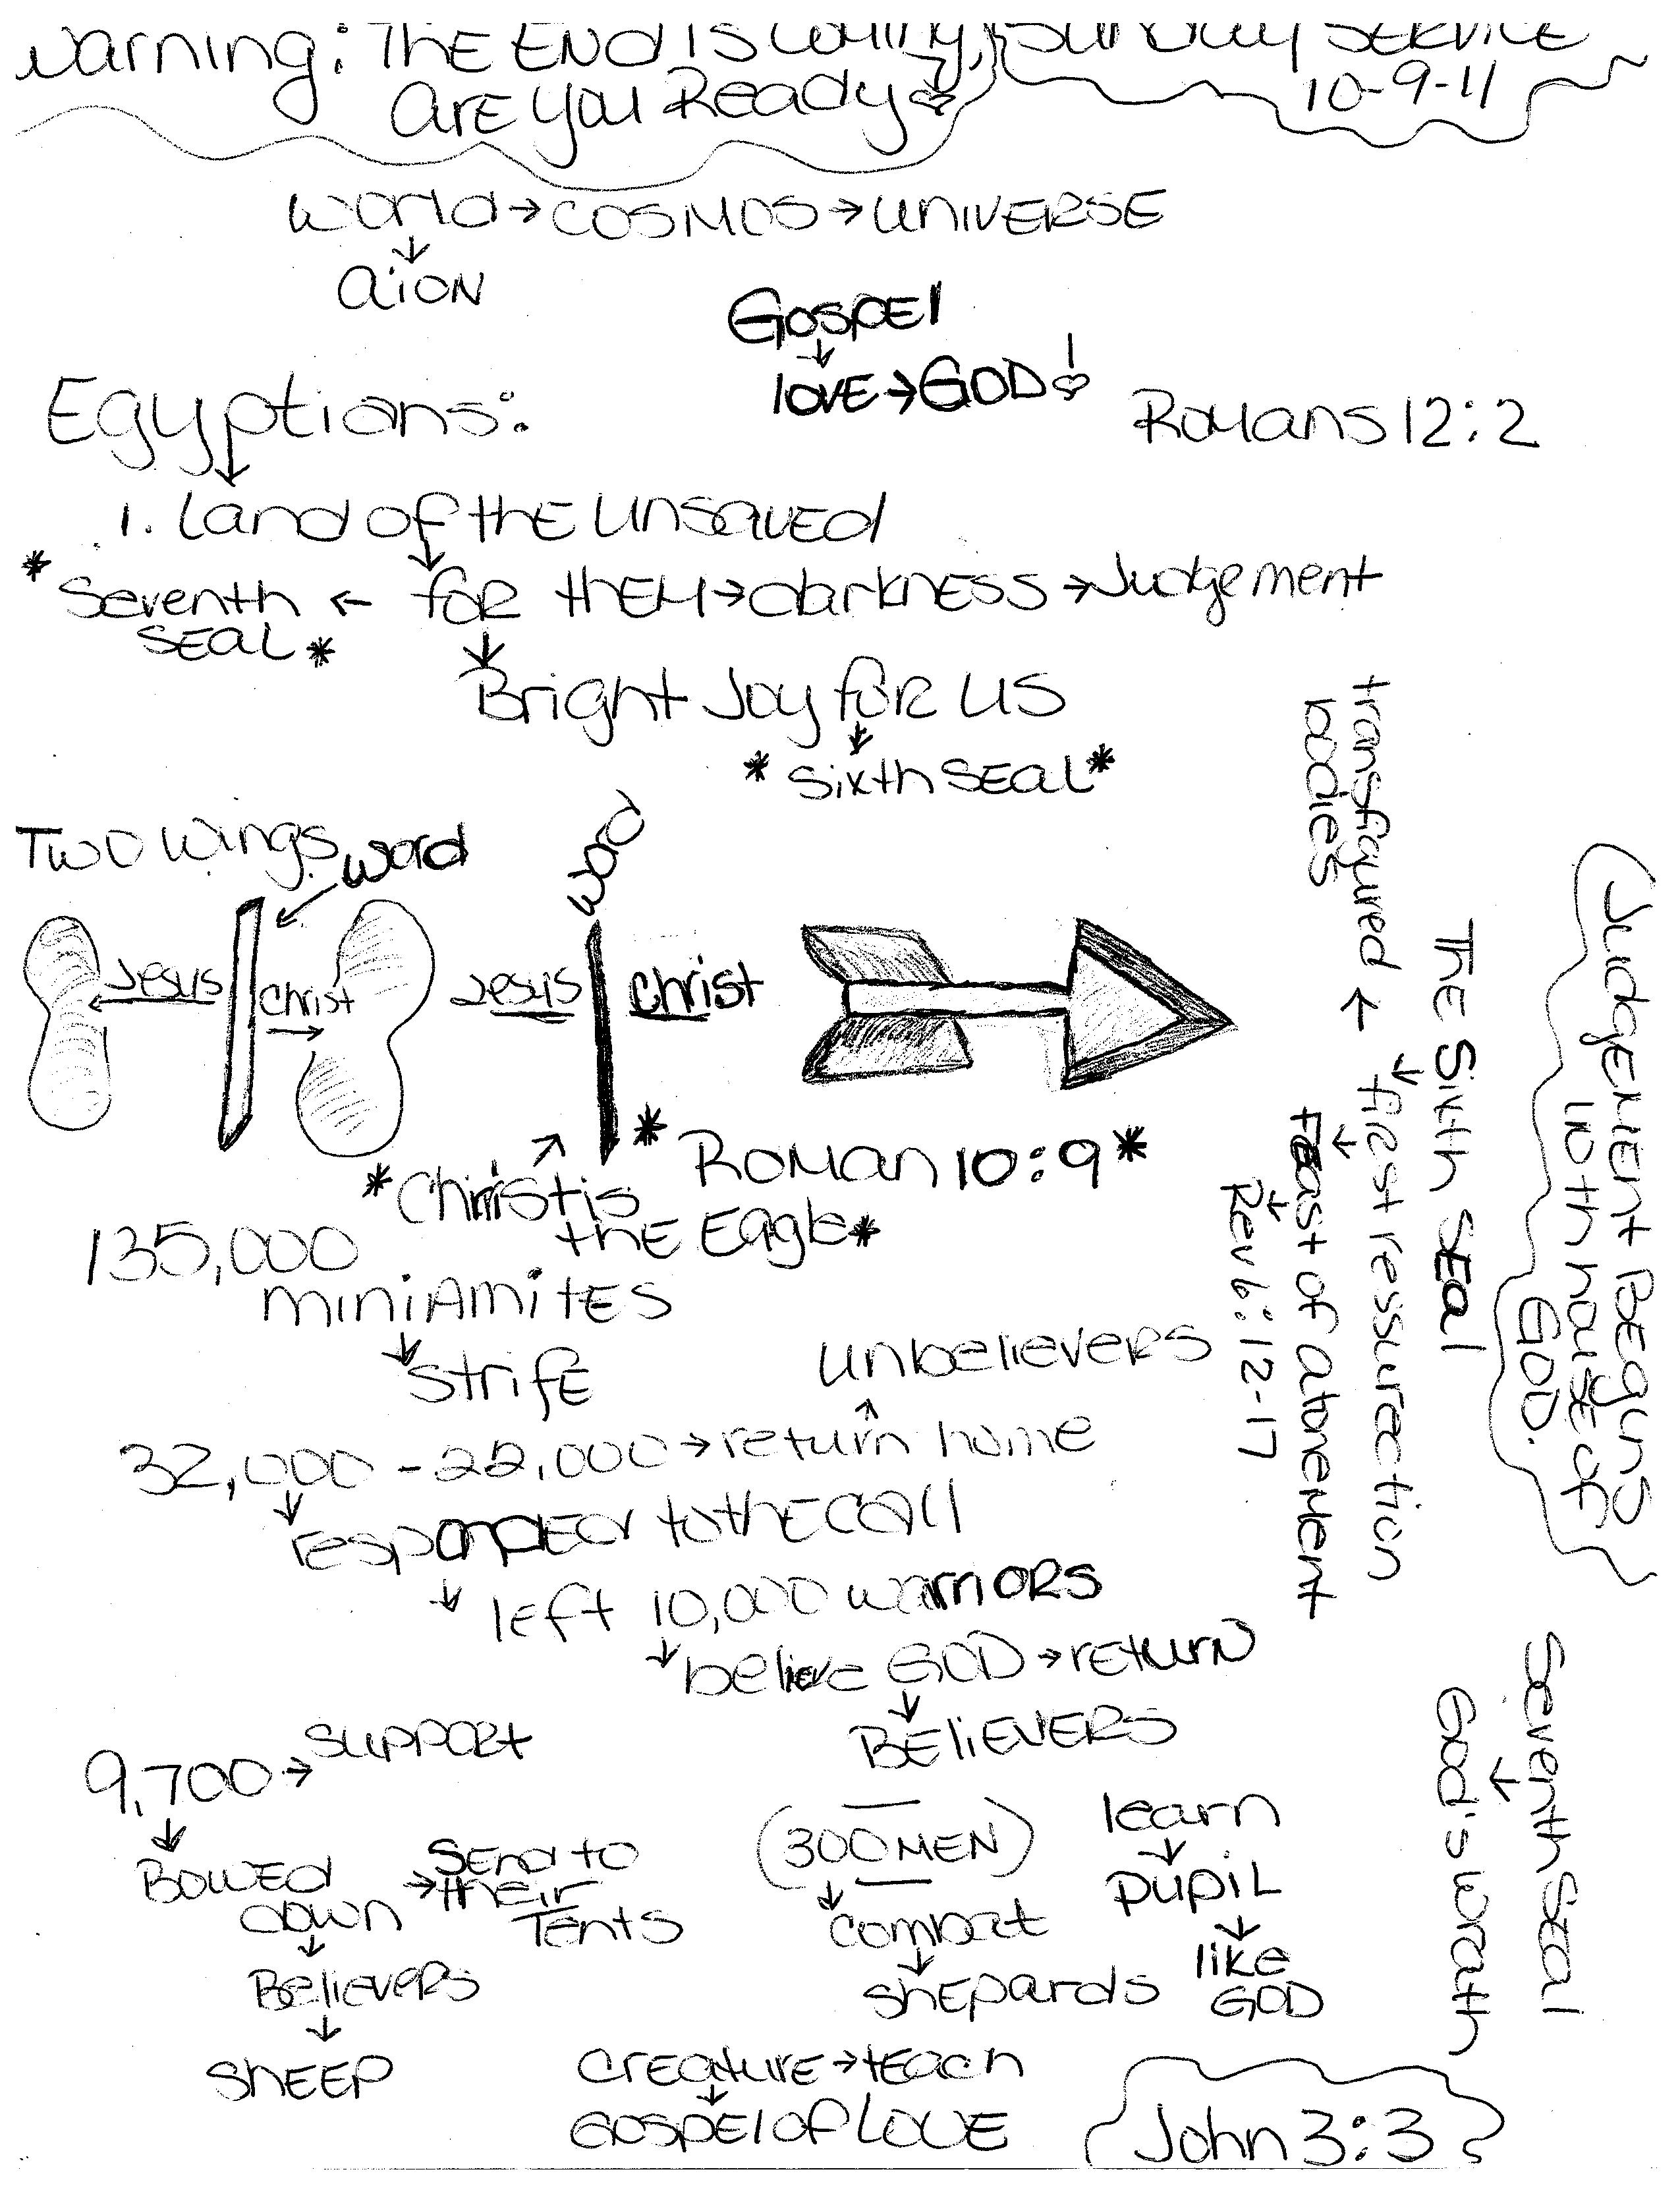 Warning: The End is Coming,
Are you Ready
Sunday Service
10-9-11
World → Cosmos → Universe
↓
Aion
Gospel
↓
love → GOD!
Egyptians:
Romans 12:2
1. Land of the unsaved
* Seventh ← for them → darkness → Judgement
Seal *
Bright Joy for us
* Sixth Seal *
Two Wings
word
word
Jesus
Christ
Jesus
Christ
* Roman 10:9 *
* Christ is
the Eagle *
135,000
miniamites
↓
strife
unbelievers
↑
32,000 - 22,000 → return home
↓
responded to the call
↓ left 10,000 warriors
↓ believe GOD → return
↓
Believers
9,700 → support
↓
Bowed
down
→ Send to
their
Tents
↓
Believers
↓
Sheep
(300 MEN)
↓
combat
↓
shepards
learn
↓
pupil
↓
like
GOD
creature → teach
↓
Gospel of Love
John 3:3
Judgement Beguns
110th house of
GOD.
The Sixth Seal
↓
transfigured ← first ressurection
bodies
↓
Feast of atonement
↓
Rev 6:12-17
Seventh Seal
↓
God's wrath